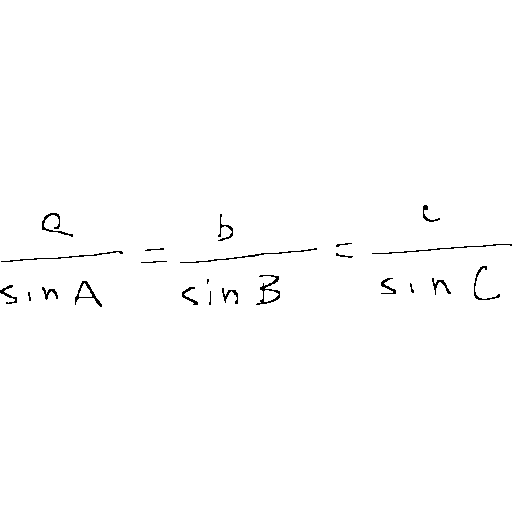 \frac{a}{\sin A} = \frac{b}{\sin B} = \frac{c}{\sin C}